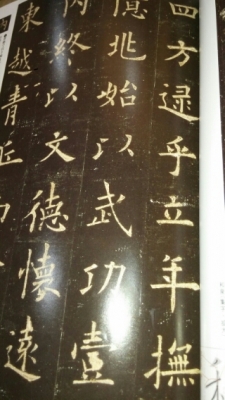 四方逮乎立年撫
億兆始以武功壹
内終以文德懷遠
東越青丘